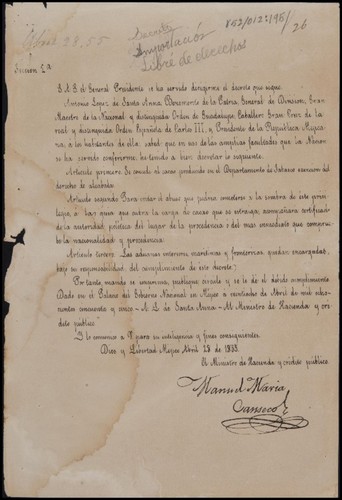 Abril 28, 55
Decreto
Importación
Libre de derechos
V52/012"195"/26
Sección 2ª
S. A. S. el General Presidente se ha servido dirigirme el decreto que sigue.
Antonio Lopez de Santa Anna Benemerito de la Patria, General de Division, Gran
Maestre de la Nacional y distinguida Orden de Guadalupe, Caballero Gran Cruz de la
real y distinguida Orden Española de Carlos III, y Presidente de la Republica Mejica
na, á los habitantes de ella, sabed: que en uso de las amplias facultades que la Nacion
se ha servido conferirme, he tenido á bien decretar lo siguiente.
Articulo primero. Se concede al cacao producido en el Departamento de Tabasco esencion del
derecho de alcabala.
Articulo segundo. Para evitar el abuso que pudiera cometerse á la sombra de este privi
legio, á las guias que cubra la carga de cacao que se estraiga, acompañará certificado
de la autoridad politica del lugar de la procedencia
la nacionalidad y procedencia.
Articulo tercero. Las aduanas interiores, maritimas y fronterizas quedan encargadas,
bajo su responsabilidad, del cumplimiento de este decreto.
Por tanto, mando se imprima, publique, circule y se le dé el debido cumplimiento.
Dado en el Palacio del Gobierno Nacional en Mejico á veintiocho de Abril de mil ocho
cientos cincuenta y cinco.- A. L. de Santa Anna.- Al Ministro de Hacienda y cre
dito público."
Y lo comunico á V. para su inteligencia y fines consiguientes.
Dios y Libertad Mejico Abril 28 de 1855.
El Ministro de Hacienda y crédito público.
Manuel Maria
Canseco